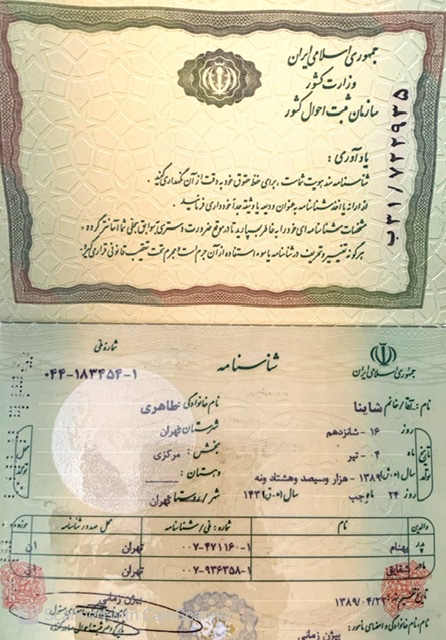 جمهوری اسلامی ایران
وزارت کشور
سازمان ثبت احوال کشور
ب۳۱/۷۲۲۹۳۵
یادآوری :
شناسنامه سند هویت شماست ، برای حفظ حقوق خود به دقت از آن نگهداری کنید .
از ارائه یا اخذ شناسنامه به عنوان ودیعه یا وثیقه جداً خودداری فرمائید .
مشخصات شناسنامه‌ای خود را به خاطر بسپارید تا در موقع ضرورت دسترسی به سوابق سجلی شما آسانتر گردد .
هرگونه تغییر و تحریف در شناسنامه یا سوء استفاده از آن جرم است و مجرم تحت تعقیب قانونی قرار می‌گیرد .
جمهوری اسلامی ایران
شناسنامه
شماره ملی
۰۴۴-۱۸۳۴۵۴-۱
نام : آقا/خانم شاینا
نام خانوادگی طاهری
تاریخ تولد
روز ۱۶ - شانزدهم
ماه ۰۴ - تیر
سال (ه.ش) ۱۳۸۹ - هزار و سیصد و هشتاد و نه
روز ۲۴ ماه رجب سال (ه.ق) ۱۴۳۱
محل تولد
شهرستان تهران
بخش : مرکزی
دهستان :
شهر/روستا تهران
والدین نام شماره : ملی/شناسنامه محل صدور شناسنامه حوزه
پدر بهنام ۰۰۷-۴۷۱۱۶۰-۱ تهران
مادر شقایق ۰۰۷-۹۳۶۳۵۸-۱ تهران
تاریخ تنظیم ۱۳۸۹/۰۴/۲۲
نام و نام خانوادگی و امضای مأمور : بیژن زمانی
بیژن زمانی